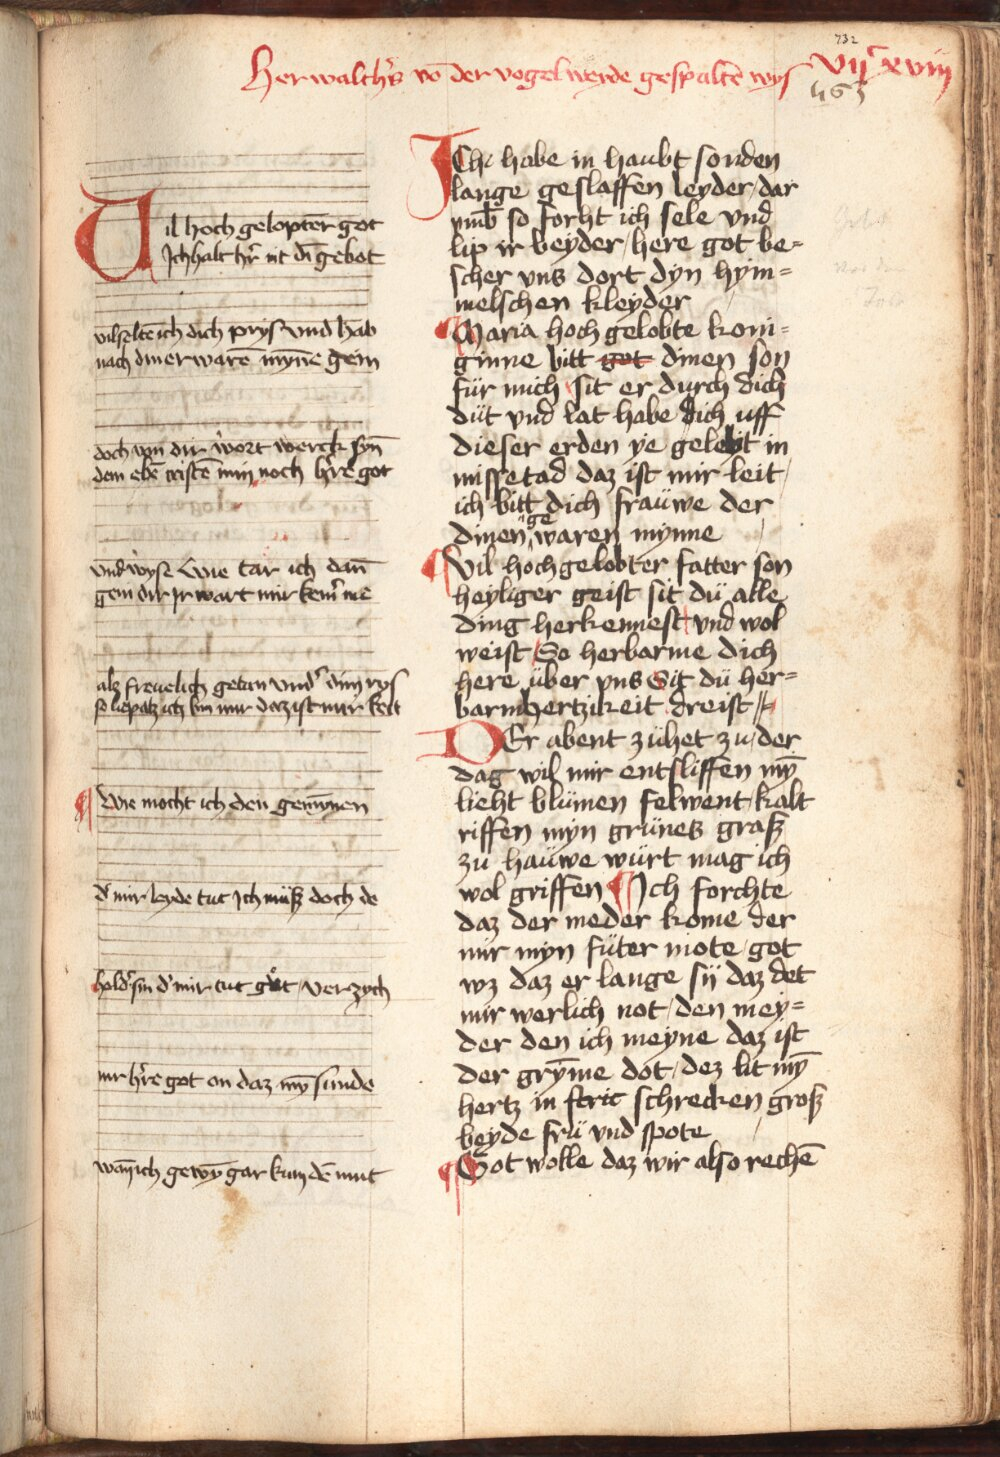 732
Her walthers vō der vogelweyde gespaltē wys
vijc xviij
463
Vil hoch gelopter got
Ich halt hr̄ nt dī gebot
vil seltē ich dich prys vnd hab
nach diner warē mȳne gern
doch von dir wort werck syn̄
dem ebē cristē min noch hr̄e got
vnd wyse Wie tar ich dan̄
gem dir Jr wart mir kem̄ nie
alz freuelich getan vnd dim rys
so liep alz ich bin mir daz ist mir kelt
Wie mocht ich den gemȳnen
d' mir leyde tut Ich müsz doch de
hold' sin d' mir tut gůt verzych
mir hr̄e got an daz mȳ sünde
wan̄ ich gewȳ gar kum dē mut
Ich habe in haubt sonden
lange geslaffen leyder / dar
vmb so forht ich sele vnd
lip ir beyder / here got be=
scher vns dort dyn hym=
melschen kleyder
Maria hoch gelobte koni=
ginne bitt got dinen son
für mich sit er durch dich
düt vnd lat habe dich uff
dieser erden ye gelebt in
missetad daz ist mir leit
ich bitt dich frauwe der
dinen ge waren mynne
Vil hochgelobter fatter son
heyliger geist sit dü alle
ding herkennest vnd wol
weist So herbarme dich
here über vns Sit dü her=
barmhertzikeit dreist
Der abent zühet zu / der
dag wil mir entsliffen mȳ
lieht blümen felwent / kalt
riffen myn grünes grasz
zu hauwe würt mag ich
wol griffen Ich forchte
daz der meder kome der
mir myn füter mote / got
wz daz er lange sij daz det
mir werlich not / den mey=
der den ich meyne daz ist
der grȳme dot / dez lit mȳ
hertz in stric schrecken grosz
beyde frü vnd spote
Got wolle daz wir also rechē